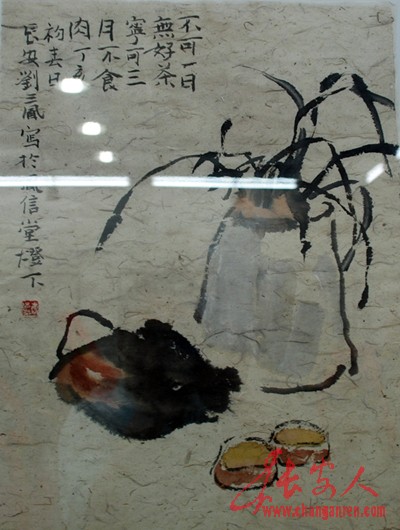 不可一日
無好茶
寧可三
月不食
肉丁亥
初春日
長安劉三風寫於風信堂燈下
长安人
www.changanren.com